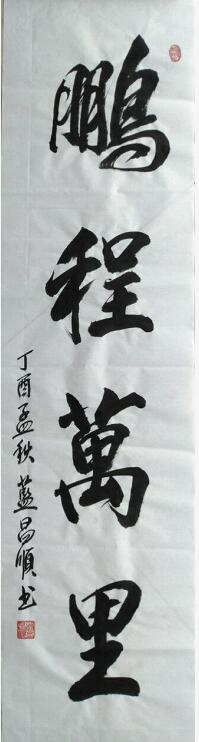 鵬程萬里
丁酉孟秋藍昌順书